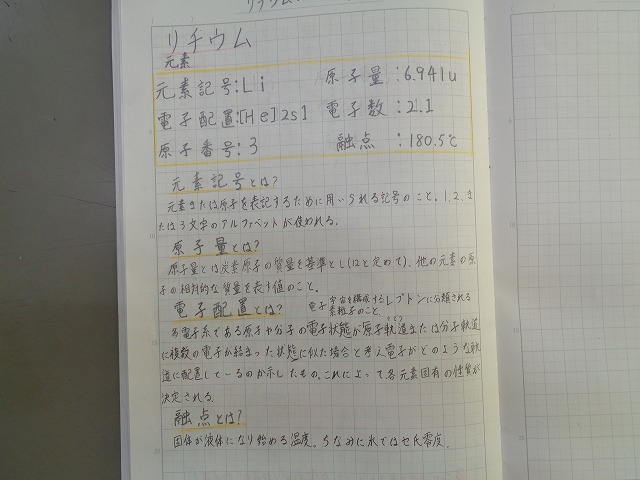 リチウム
元素
元素記号:Li 原子量:6.941u
電子配置:[He]2s1 電子数:2.1
原子番号:3 融点:180.5℃
元素記号とは?
元素または原子を表記するために用いられる記号のこと。1、2、ま
たは3文字のアルファベットが使われる。
原子量とは?
原子量とは炭素原子の質量を基準とし(12と定めて)、他の元素の原
子の相対的な質量を表す値のこと。
電子配置とは? 電子 宇宙を構成するレプトンに分類される
素粒子のこと。
多電子系である原子や分子の電子状態が原子軌道または分子軌道
に複数の電子が詰まった状態に似た場合と考え電子がどのような軌
道に配置しているのか示したもの。これによって各元素固有の性質が
決定される。
融点とは?
固体が液体になり始める温度。ちなみに水ではセ氏零度。